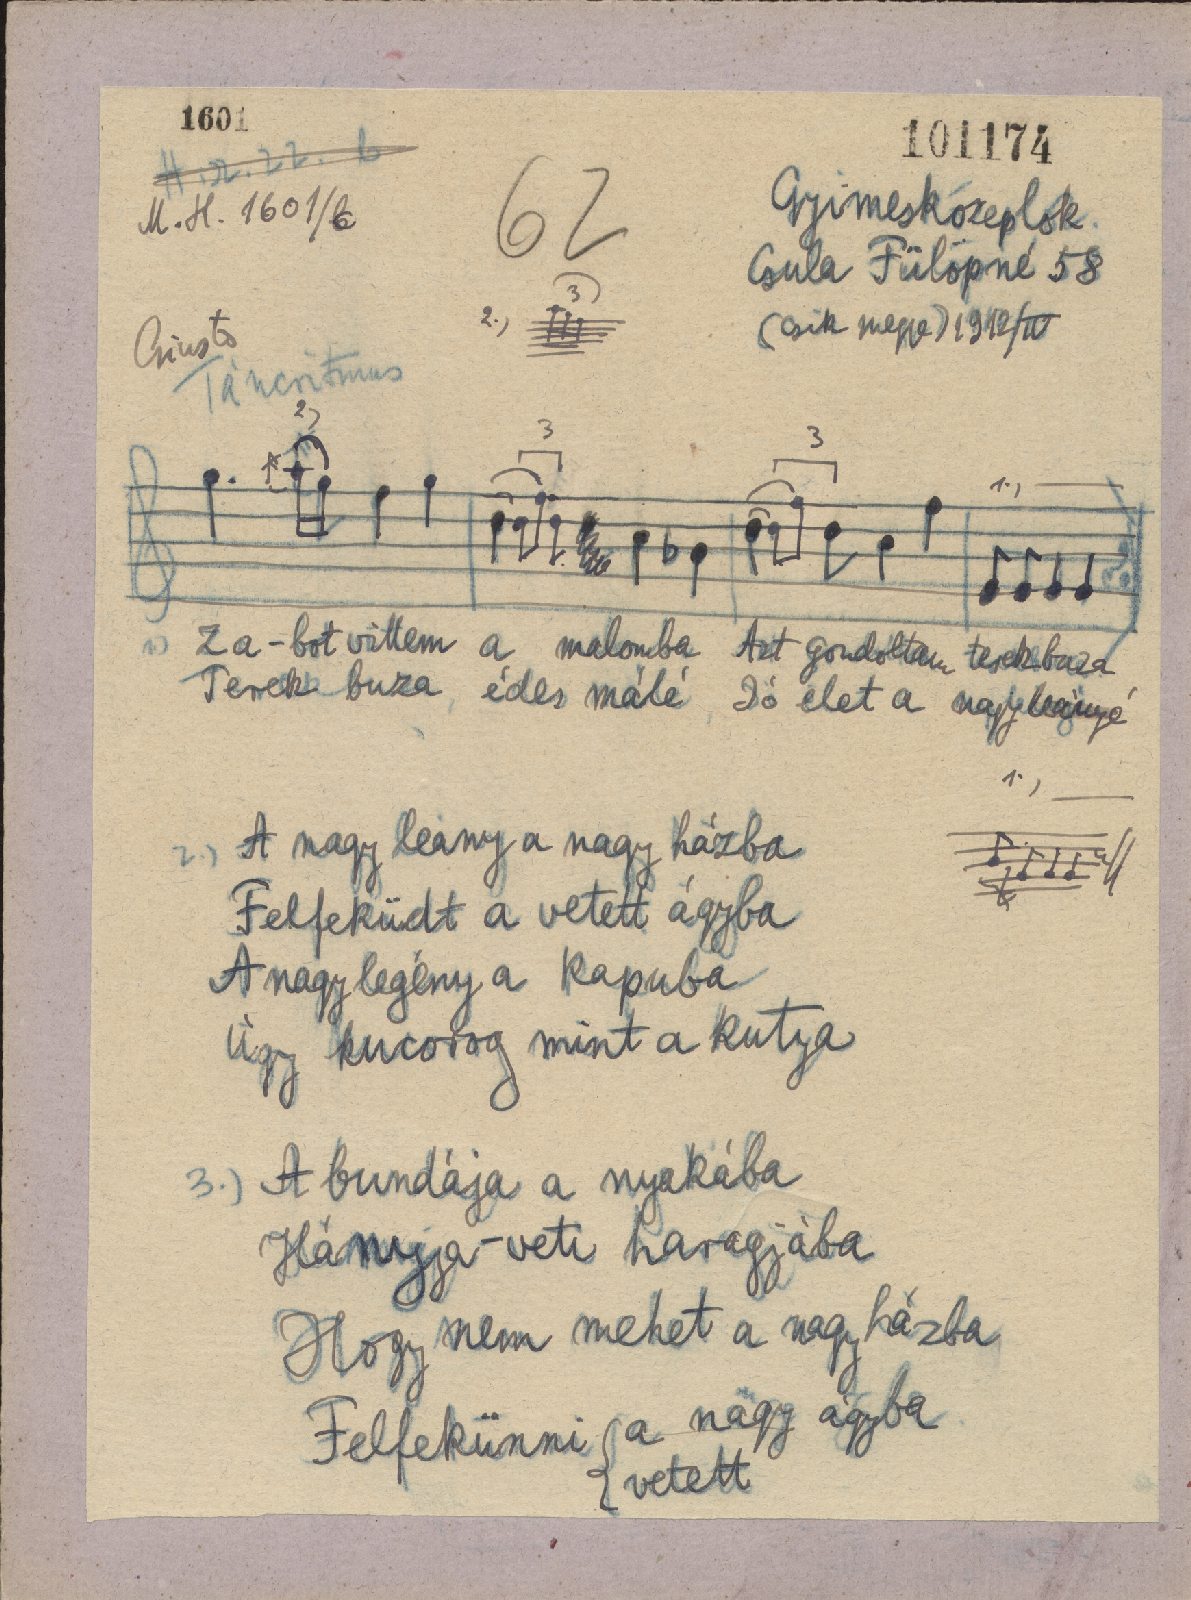 1601
101174
H.sz.22. b
M.H. 1601/b
62
Gyimesközéplok.
Csula Fülöpné 58
(Csik megye) 1912/IV
2.,
3
Giusto
Táncritmus
2)
3
3
1.,
1) Za-bot vittem a malomba Azt gondoltam terekbuza
Terek buza, édes málé, Jó élet a nagyleányé
1.,
2.) A nagy leány a nagy házba
Felfeküdt a vetett ágyba
A nagy legény a kapuba
Úgy kucorog mint a kutya
3.) A bundája a nyakába
Hánnyja-veti haragjába
Hogy nem mehet a nagy házba
Felfekünni { a nagy ágyba
vetett